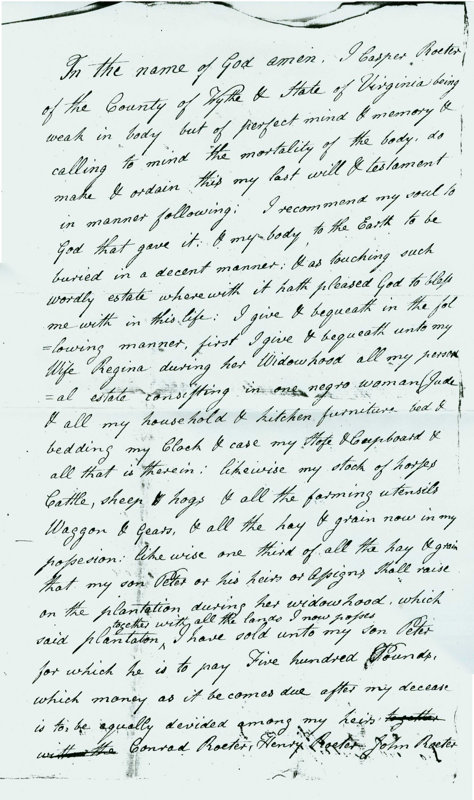 In the name of God amen. I Casper Roeter
of the County of Wythe & State of Virginia being
weak in body but of perfect mind & memory &
calling to mind the mortality of the body, do
make & ordain this my last will & testament
in manner following; I recommend my soul to
God that gave it; & my body to the Earth to be
buried in a decent manner; & as touching such
wordly estate wherewith it hath pleased God to bless
me with in this life; I give & bequeath in the fol
=lowing manner, first I give & bequeath unto my
Wife Regina during her Widowhood all my person
=al estate consisting in one negro woman (Jude
& all my household & kitchen furniture bed &
bedding my Clock & case my Stove & Coupboard &
all that is therein; likewise my stock of horses
Cattle, sheep & hogs & all the farming utensils
Waggon & Gears, & all the hay & grain now in my
possesion; likewise one third of all the hay & grain
that my son Peter or his heirs or Assigns Shall raise
on the plantation during her widowhood. which
together with all the lands I now posses
said plantaton ^ I have sold unto my son Peter
for which he is to pay Five hundred Pounds,
which money as it becomes due after my decease
is to be equally devided among my heirs together
with the Conrad Roeter, Henry Roeter John Roeter